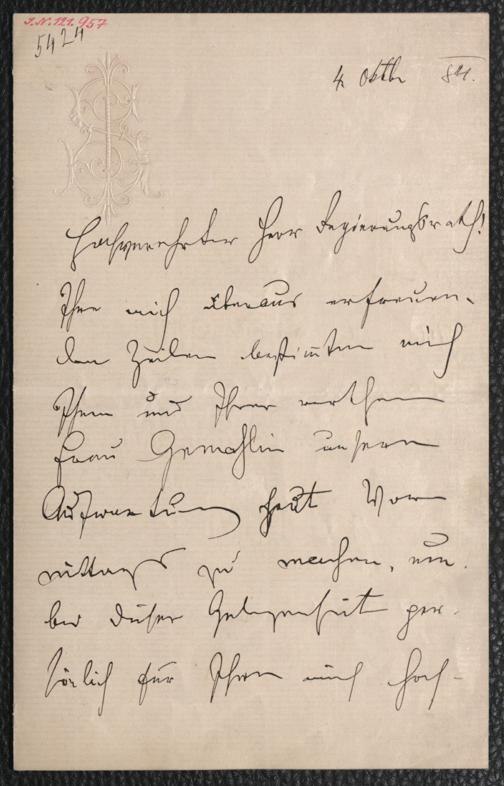 I.N. 121.957
5424
4 Octbr 84.
Hochverehrter Herr Regierungsrath!
Ihre mich überaus erfreuen-
den Zeilen bestimmten mich
Ihnen und Ihrer werthen
Frau Gemahlin unsern
Aufwartung heut Vor
mittags zu machen, um
bei dieser Gelegenheit per-
sönlich für Ihren mich hoch-